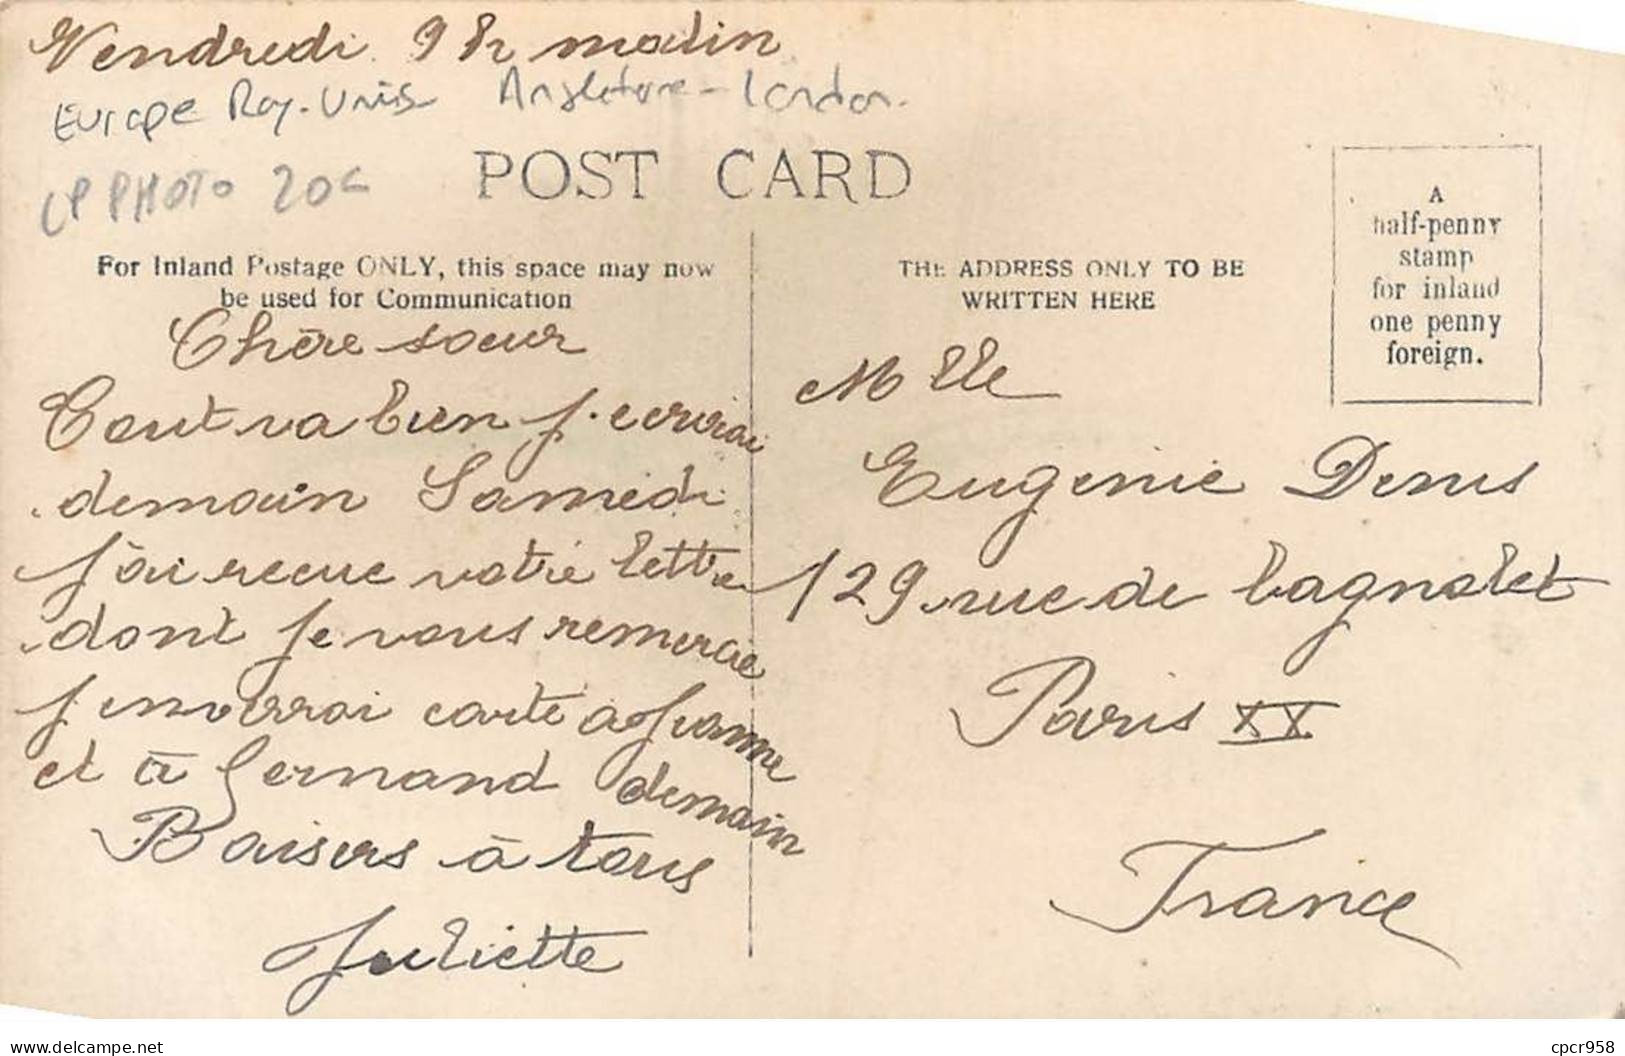 Vendredi 9h matin
Europe Roy. Unis Angleterre - London.
CP PHOTO 20€
POST CARD
For Inland Postage ONLY, this space may now
be used for Communication
THE ADDRESS ONLY TO BE
WRITTEN HERE
A
half-penny
stamp
for inland
one penny
foreign.
Chère soeur
Tout va bien j'ecrirai
demain Samedi
j'ai recue votre lettre
dont je vous remercie
j'enverrai carte a Jeanne
et à Fernand demain
Baisers à tous
Juliette
Mlle
Eugenie Denis
129 rue de bagnolet
Paris XX
France
Delcampe.net
cpcr958